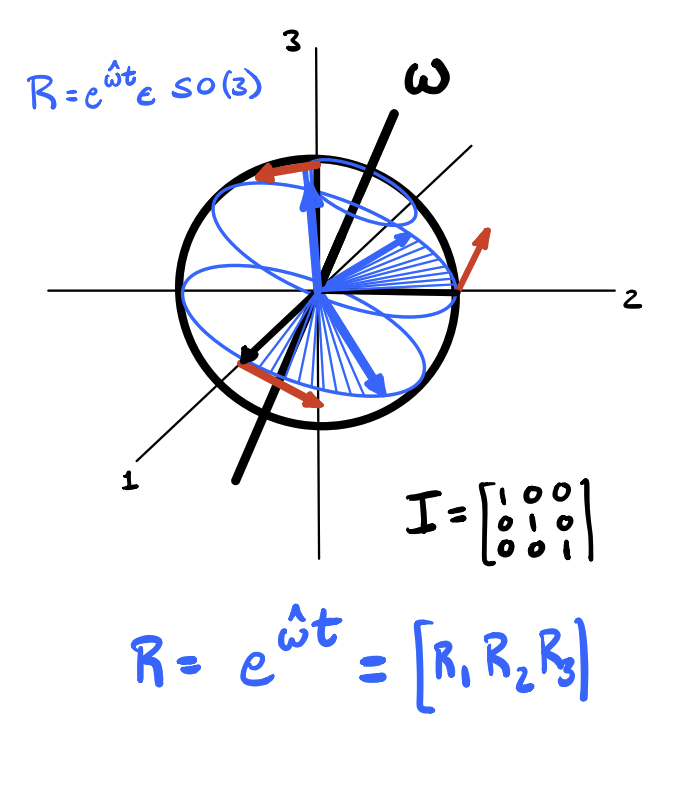 3
ω
R = e^ω̂t ϵ SO(3)
2
1
I = [1 0 0
0 1 0
0 0 1]
R = e^ω̂t = [R₁ R₂ R₃]